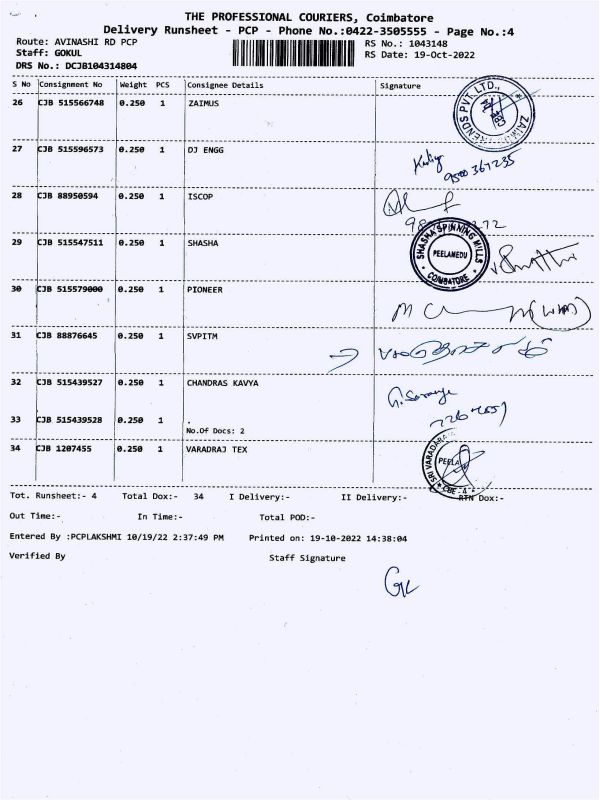 THE PROFESSIONAL COURIERS, Coimbatore
Delivery Runsheet - PCP - Phone No.:0422-3505555 - Page No.:4
Route: AVINASHI RD PCP RS No.: 1043148
Staff: GOKUL RS Date: 19-Oct-2022
DRS No.: DCJB104314804
S No Consignment No Weight PCS Consignee Details Signature
26 CJB 515566748 0.250 1 ZAIMUS
PVT. LTD.,
27 CJB 515596573 0.250 1 DJ ENGG
9500367235
28 CJB 88950594 0.250 1 ISCOP
29 CJB 515547511 0.250 1 SHASHA
SHASHA SPINNING MILLS
PEELAMEDU
COIMBATORE
30 CJB 515579000 0.250 1 PIONEER
31 CJB 88876645 0.250 1 SVPITM
32 CJB 515439527 0.250 1 CHANDRAS KAVYA
33 CJB 515439528 0.250 1 .
No.Of Docs: 2
34 CJB 1207455 0.250 1 VARADRAJ TEX
SRI VARADARAJA
CBE - 4
Tot. Runsheet:- 4 Total Dox:- 34 I Delivery:- II Delivery:- RTN Dox:-
Out Time:- In Time:- Total POD:-
Entered By :PCPLAKSHMI 10/19/22 2:37:49 PM Printed on: 19-10-2022 14:38:04
Verified By Staff Signature